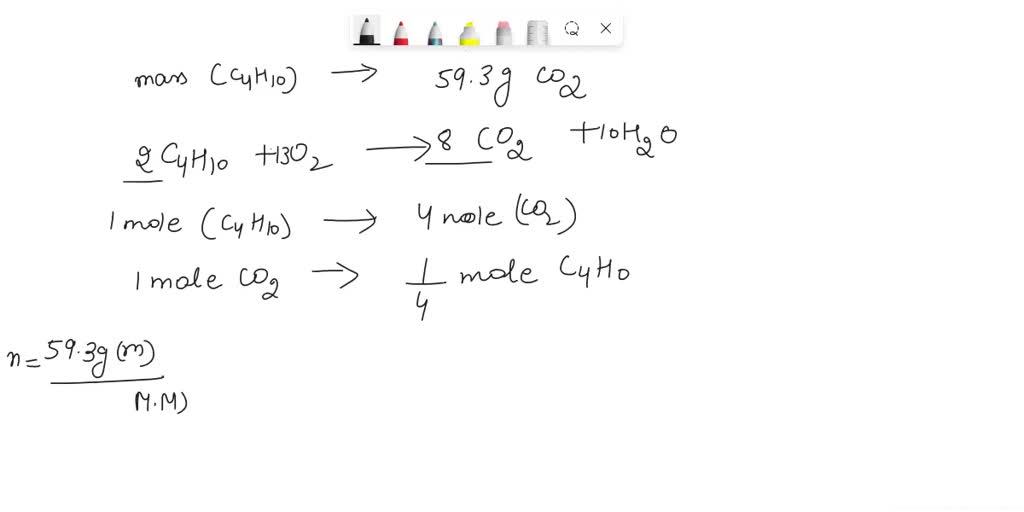 mass (C4H10) → 59.3g CO2
2 C4H10 + 13O2 → 8 CO2 + 10H2O
1 mole (C4H10) → 4 mole (CO2)
1 mole CO2 → 1/4 mole C4H0
n = 59.3g (m)
M.M)